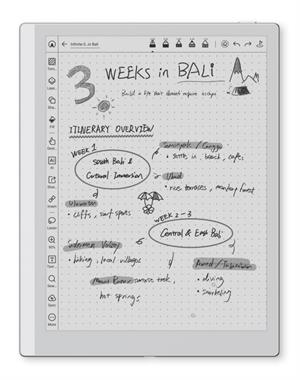 Infinite 3 Weeks in Bali
3 WEEKS in BALI
Build a life that doesn't require escape.
ITINERARY OVERVIEW
WEEK 1
South Bali &
Cultural Immersion
Seminyak / Canggu
• settle in, beach, cafes
Ubud
• rice terraces, monkey forest
Uluwatu
• cliffs, surf spots
WEEK 2-3
Central & East Bali
Sidemen Valley
• hiking, local villages
Mount Batur sunrise trek,
hot springs
Amed / Tulamben
• diving
• snorkeling
Fill
AI
Insert
Lasso
Text
More